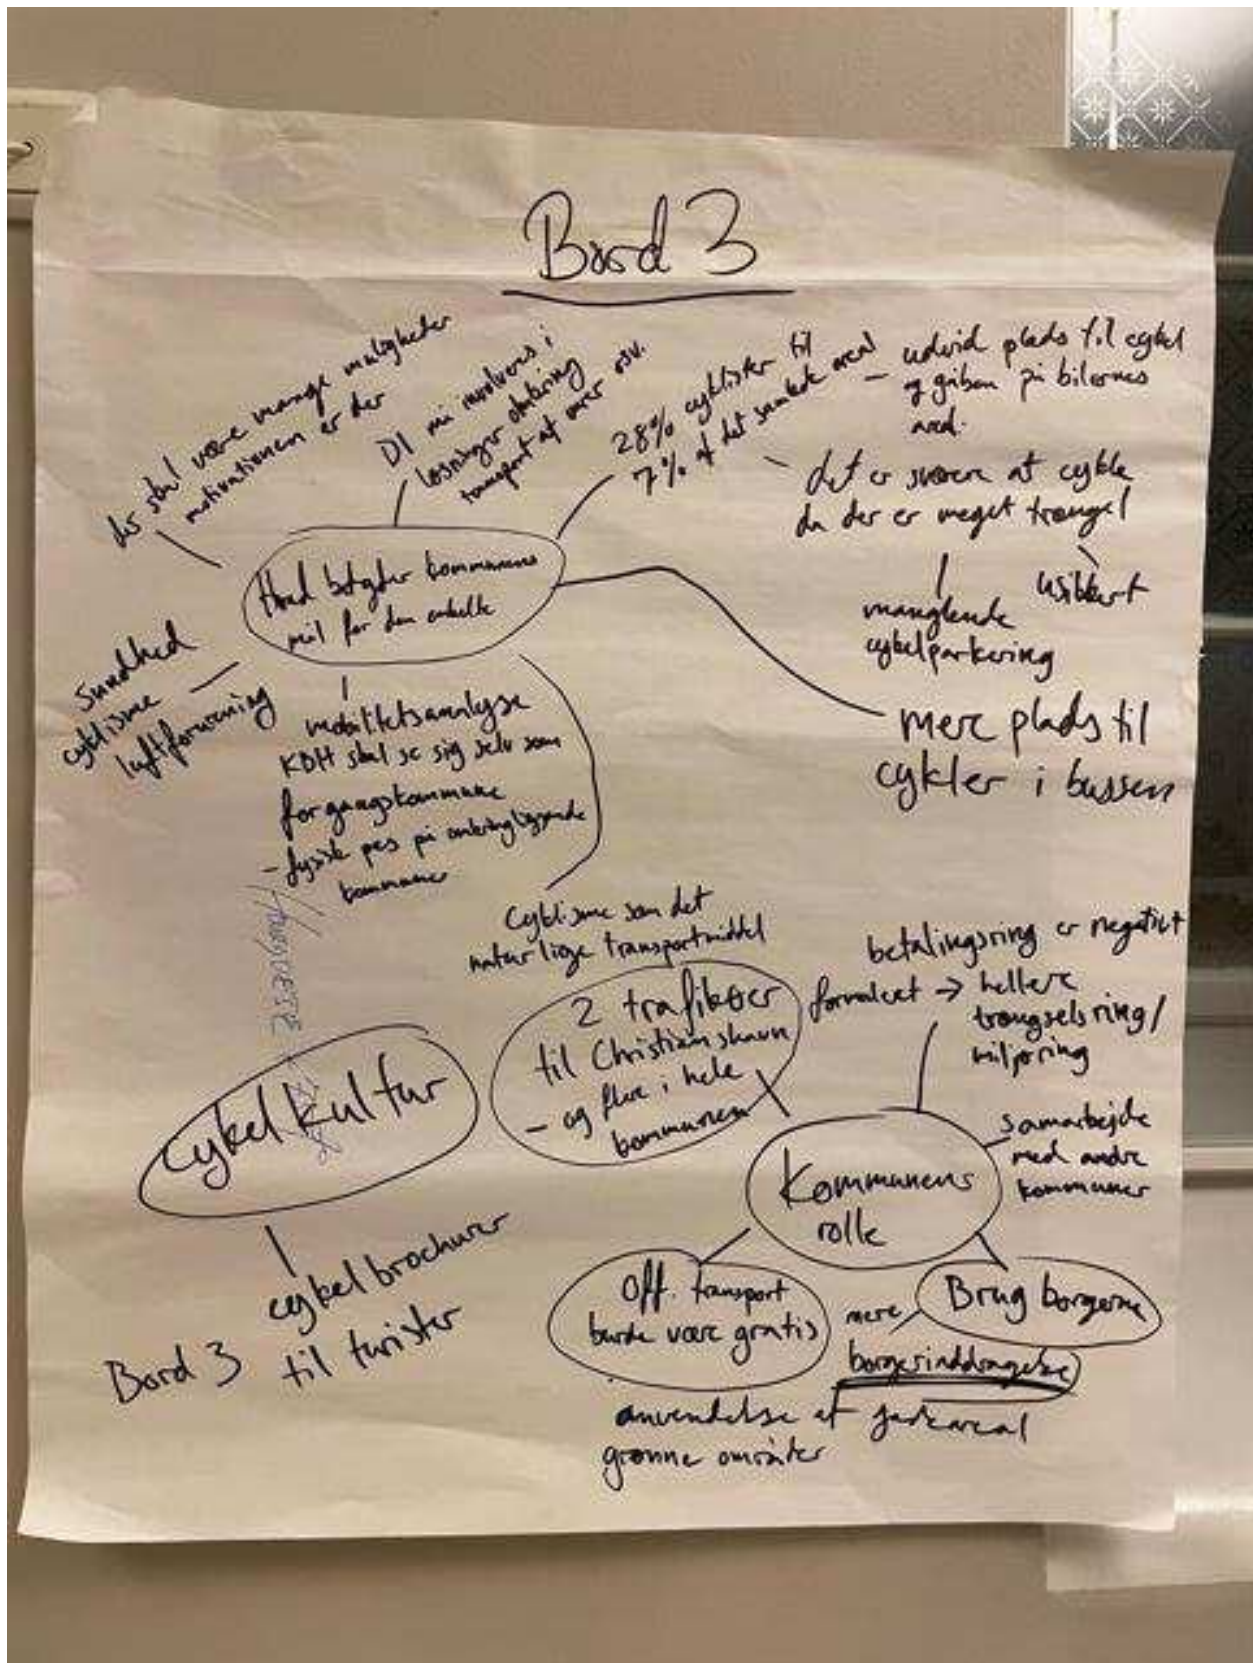 Bord 3
der skal være mange muligheder
motivationen er der
DI må involveres i
løsninger omkring
transport af varer osv.
28% cyklister til
7% af det samlede areal
- udvid plads til cykel
og gåben på bilernes
areal.
det er sværere at cykle
da der er meget trængsel
usikkert
manglende
cykelparkering
Hvad betyder kommunens
mål for den enkelte
mere plads til
cykler i bussen
Sundhed
cyklisme
luftforurening
mobilitetsanalyse
KBH skal se sig selv som
foregangskommune
- fysisk pres på omkringliggende
kommuner
Cyklisme som det
naturlige transportmiddel
betalingsring er negativt
formuleret → hellere
trængselsring/
miljøring
2 trafikøer
til Christianshavn
- og flere i hele
kommunen
Cykelkultur
cykelbrochurer
til turister
samarbejde
med andre
kommuner
Kommunens
rolle
Off. transport
burde være gratis
Brug borgerne
mere
borgerinddragelse
anvendelse af
grønne områder
Bord 3